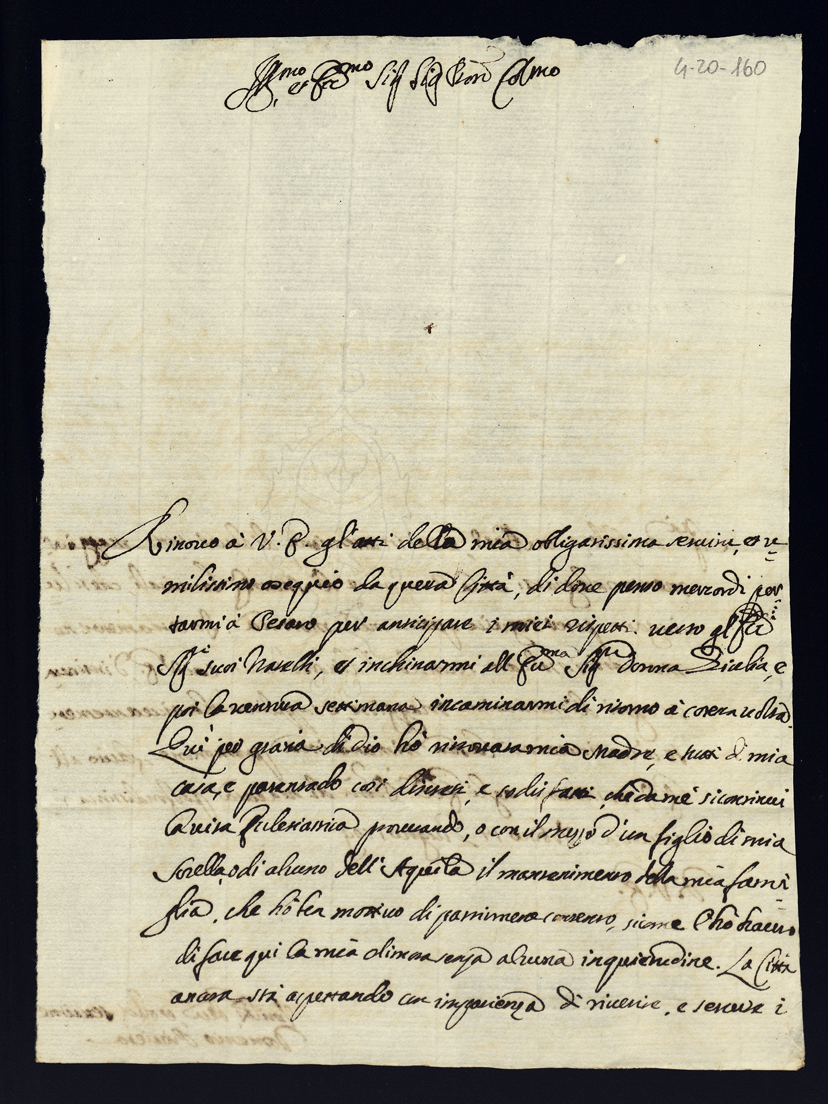 4-20-160
Ill.mo et Ecc.mo Sig.r Sig.r Pron Col.mo
Rinovo à V. E. gl'atti della mia obligatissima servitù, et u=
milissimo ossequio da questa Città, di dove penso mercordì por=
tarmi à Pesaro per anticipare i miei rispetti verso gl'Ecc.mi
Sig.ri suoi Nav, et inchinarmi all'Ecc.ma Sig.ra Donna, e
poi la ventura settimana incaminarmi di ritorno à cotesta volta.
Qui per grazia di Dio hò ritrovata mia Madre, e tutti di mia
casa, e parentado così, e sodisfatti, che da mè si continui
la vita Eclesiastica, o con il mezzo d'un figlio di mia
Sorella, o di alcuno dell'Aquila il mantenimento della mia fami=
glia, che hò motivo di partirmene contento, sicome l'hò havuto
di fare qui la mia dimora senza alcuna inquietudine. La Città
ancora stà aspettando con impazienza di ricevere, e servire i